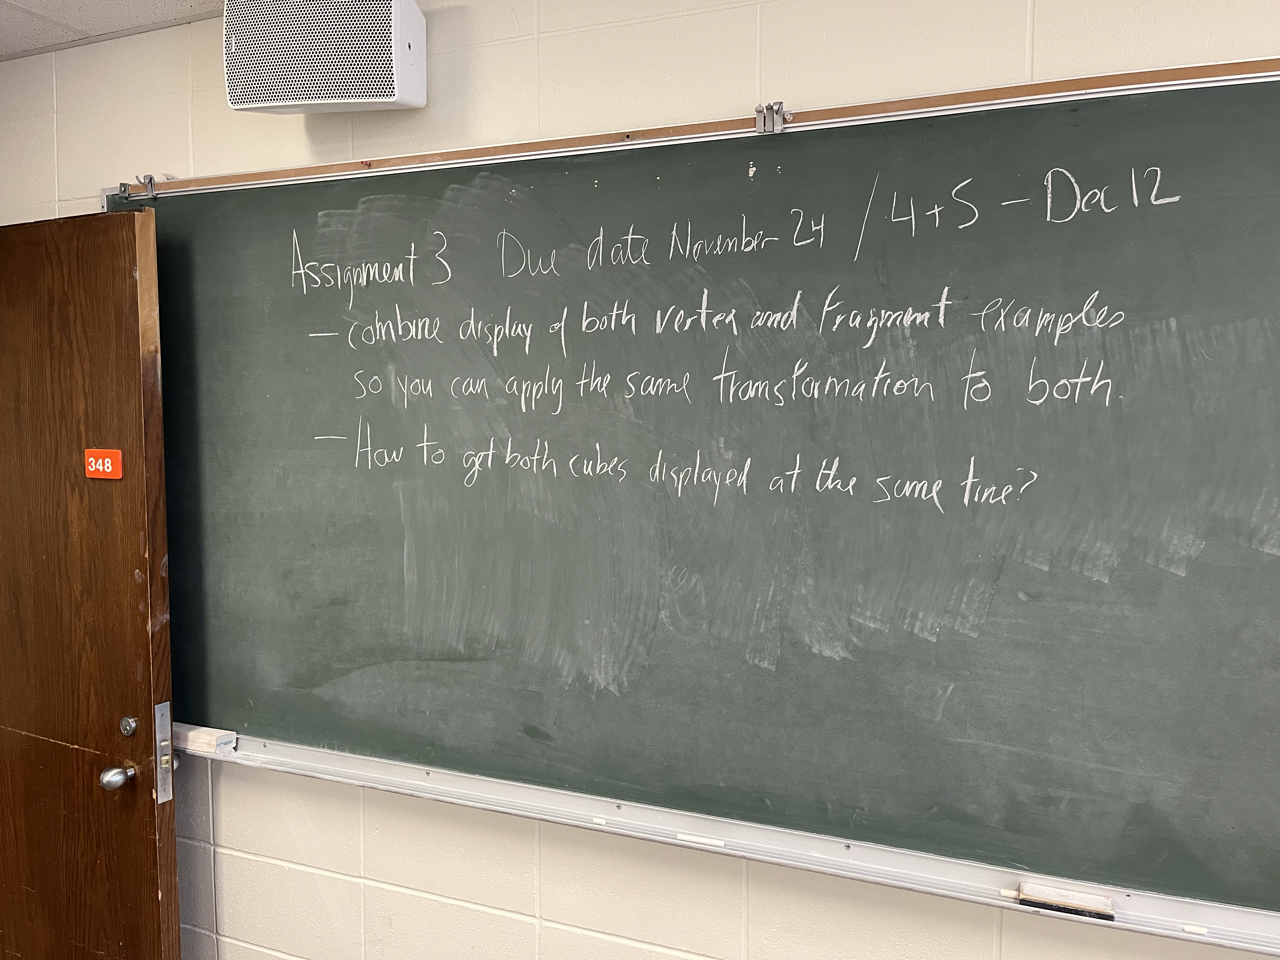 Assignment 3 Due date November 24 / 4+5 - Dec 12
- combine display of both vertex and fragment examples
so you can apply the same transformation to both.
- How to get both cubes displayed at the same time?
348